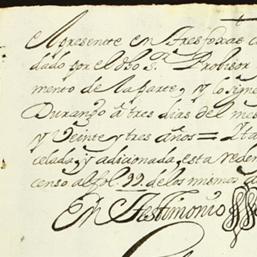 el presente en tres foxas
dado por el dho S.r Provisor
mento de la parte, y lo signe
Durango à tres dias del mes
y Veinte y tres años = Ta
celada, y adicionada, esta reden
censo al fol. 99. de los mismos
En Testimonio